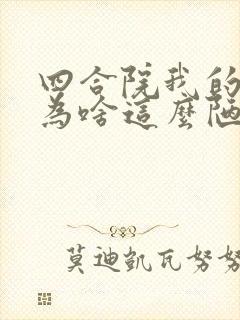 四合院我的
為啥這麼陋
莫迪凱瓦努努